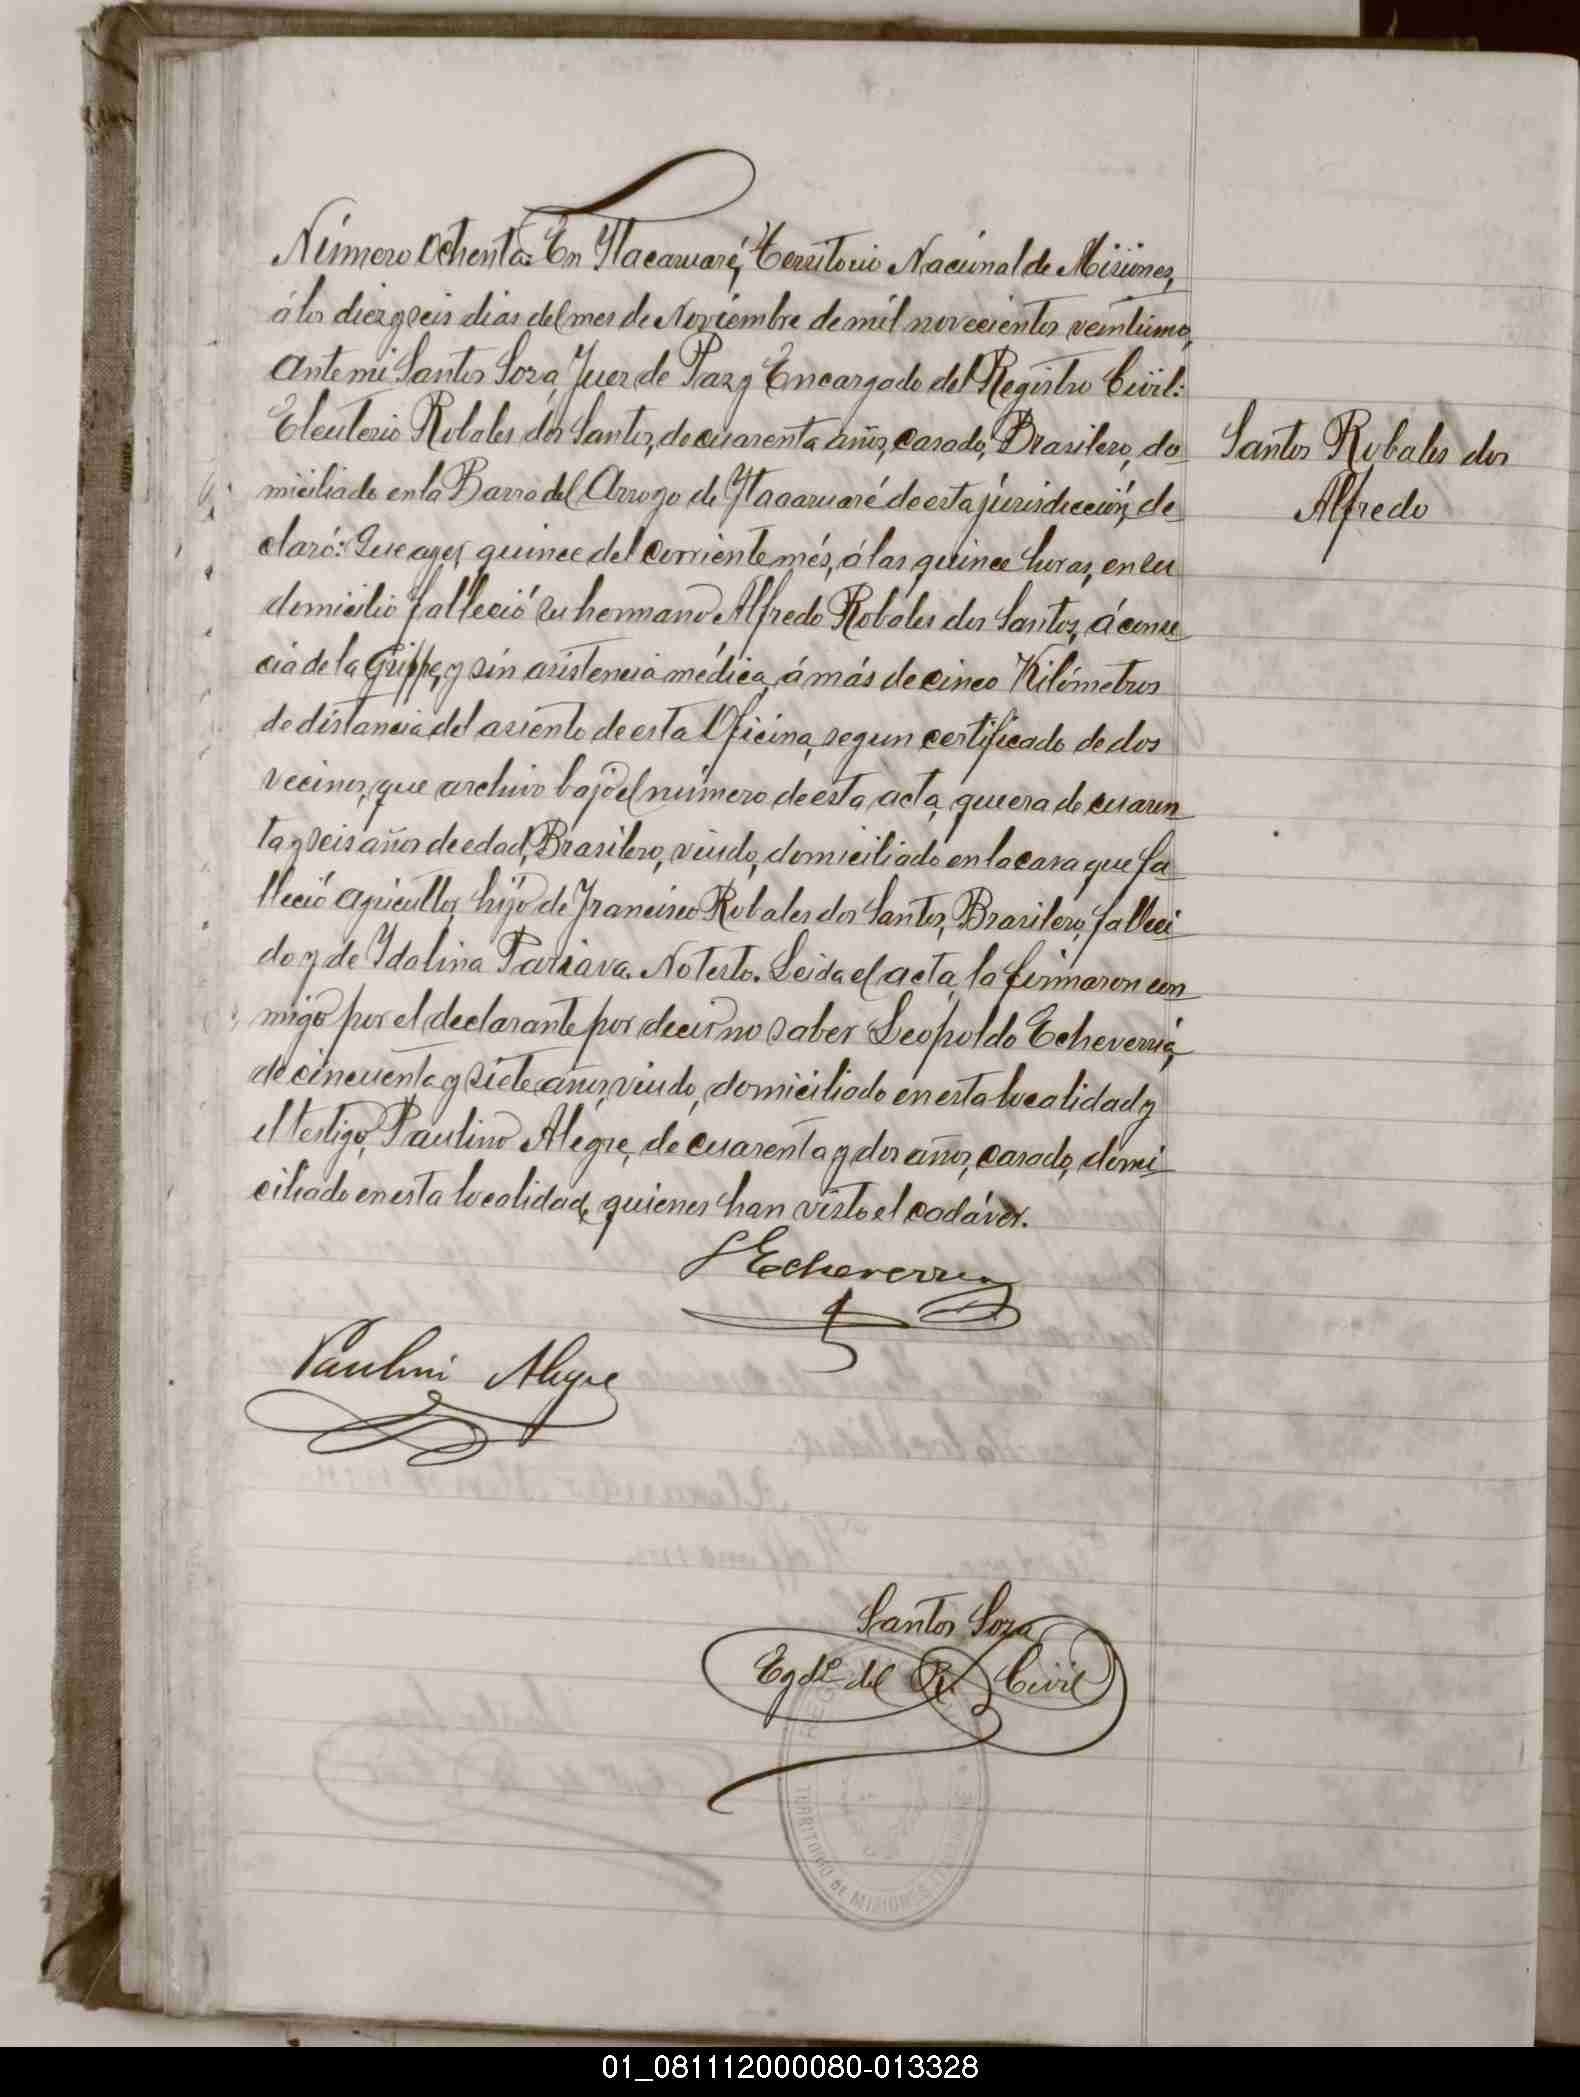 Número Ochenta: En Ytacaruaré, Territorio Nacional de Misiones,
á los diez y seis dias del mes de Noviembre de mil novecientos veintiuno,
ante mi Santos Soza, Juez de Paz y Encargado del Registro Civil:
Eleuterio Robales dos Santos, de cuarenta años, casado, Brasilero, do
miciliado en la Barra del Arroyo de Ytacaruaré de esta jurisdicción, de
claró: Que ayer, quince del corriente més, á las quince horas, en su
domicilio falleció su hermano Alfredo Robales dos Santos, á conse
cia de la Grippe, y sin asistencia médica, á más de cinco Kilómetros
de distancia del asiento de esta Oficina, segun certificado de dos
vecinos, que archivo bajo el número de esta acta, que era de cuaren
ta y seis años de edad, Brasilero, viudo, domiciliado en la casa que fa
lleció agricultor, hijo de Francisco Robales dos Santos, Brasilero, falleci
do y de Ydalina Pariava. No testo. Leida el acta, la firmaron con
migo por el declarante por decir no saber Leopoldo Echeverria,
de cincuenta y siete años, viudo, domiciliado en esta localidad y
el testigo, Paulino Alegre, de cuarenta y dos años, casado, domi
ciliado en esta localidad, quienes han visto el cadáver.
Santos Robales dos
Alfredo
L Echeverria
Paulino Alegre
Santos Soza
Egdo del R. Civil
TERRITORIO DE MISIONES
01_081112000080-013328